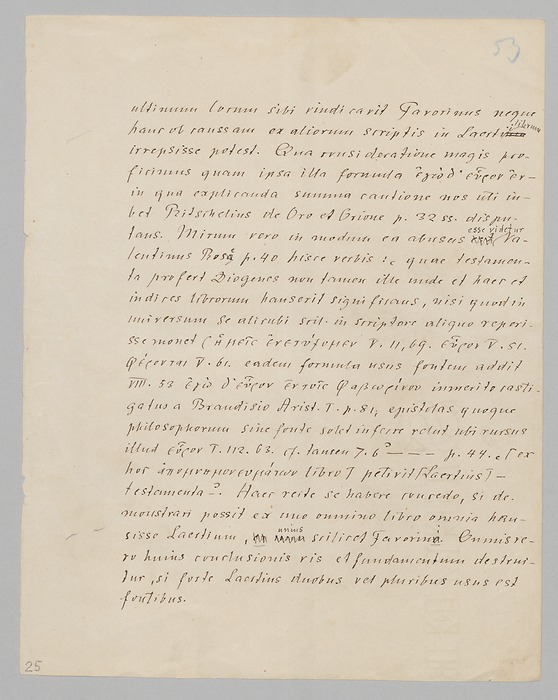 53
ultimum locum sibi vindicavit Favorinus neque
hanc ob caussam ex aliorum scriptis in Laertii librum
irrepsisse potest. Qua consideratione magis pro-
ficimus quam ipsa illa formula ἐγὼ δ' εὗρον ἐν-
in qua explicanda summa cautione nos uti iu-
bet Ritschelius de Oro et Orione p. 22 ss. dispu-
tans. Mirum vero in modum ea abusus esse videtur Va-
lentinus Rose p. 40 hisce verbis: quae testamen-
ta profert Diogenes non tamen ille unde et haec et
indices librorum hauserit significans, nisi quod in
universum se alicubi scil. in scriptore aliquo reperi-
sse monet (ἡμεῖς ἐνετύχομεν V. 11, 69. εὗρον V. 51.
φέρονται V. 61. eadem formula usus fontem addit
VIII. 53 ἐγὼ δ' εὗρον ἐν τοῖς Φαβωρίνου immerito casti-
gatus a Brandisio Arist. I. p. 81; epistolas quoque
philosophorum sine fonte solet inferre velut ubi rursus
illud εὗρον I. 112. 63. cf. tamen 7. 6 — — — p. 44.
hoc ἀπομνημονευμάτων libro] petivit [Laertius] —
testamenta. Haec recte se habere concedo, si de-
monstrari possit ex uno omnino libro omnia hau-
sisse Laertium, unius scilicet Favorini. Omnis ve-
ro huius conclusionis vis et fundamentum destrui-
tur, si forte Laertius duobus vel pluribus usus est
fontibus.
25